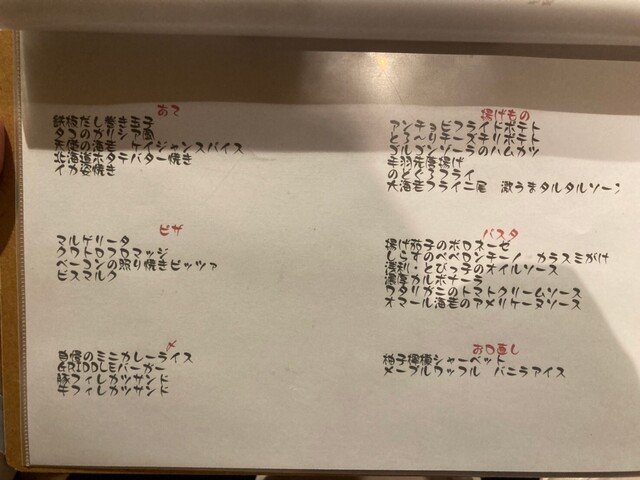 あて
鉄板だし巻き玉子
タコのガリシア風
天使の海老 ケイジャンスパイス
北海道ホタテバター焼き
イカ姿焼き
ピザ
マルゲリータ
クワトロフロマッジ
ベーコンの照り焼きピッツァ
ビスマルク
〆
自慢のミニカレーライス
GRIDDLEバーガー
豚フィレカツサンド
牛フィレカツサンド
揚げもの
アンチョビフライドポテト
とろ〜りチーズチリポテト
ゴルゴンゾーラのハムカツ
手羽元唐揚げ
のどぐろフライ
大海老フライ二尾 激うまタルタルソース
パスタ
揚げ茄子のボロネーゼ
しらすのペペロンチーノ カラスミがけ
浅利・とびっ子のオイルソース
濃厚カルボナーラ
ワタリガニのトマトクリームソース
オマール海老のアメリケーヌソース
お口直し
柚子檸檬シャーベット
メープルワッフル バニラアイス